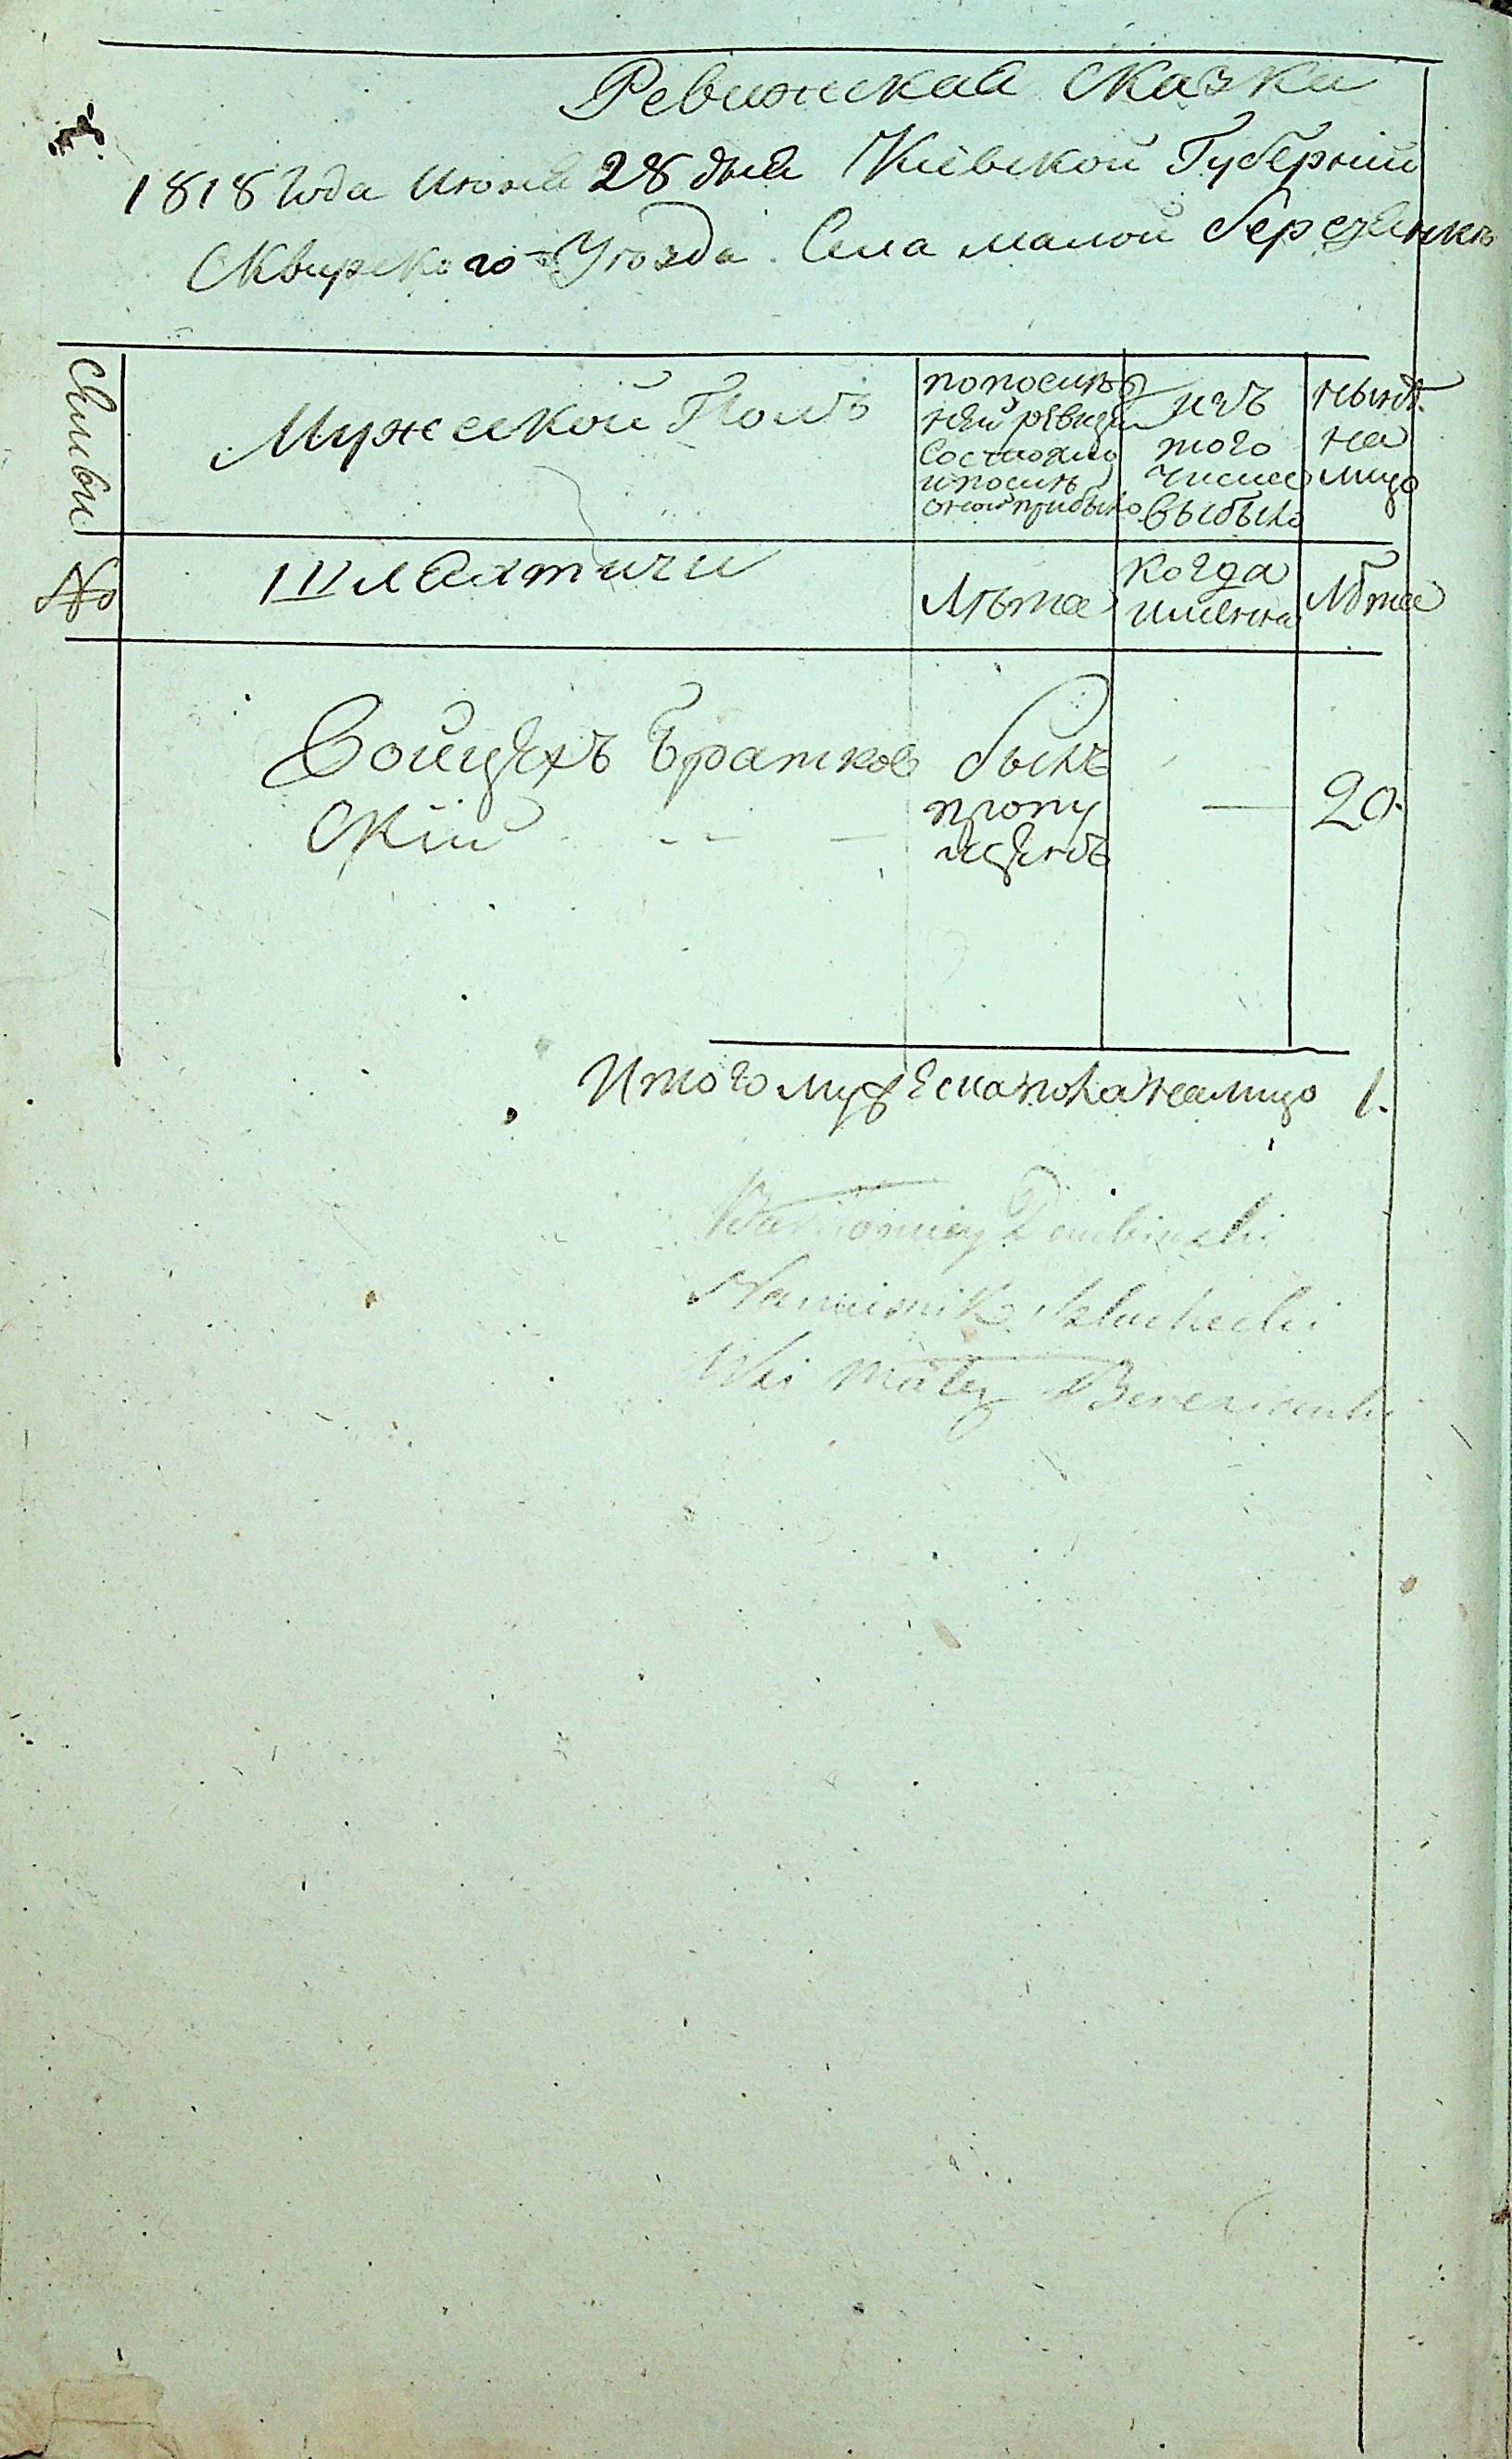 Ревижская Сказка
1818 Года Июня 28 дня Кіевской Губерніи
Сквирского Уезда. Села малой березянки
Симьи
Мужеской Полъ
попослѣд
ней ревизіи
Состояло
ипослѣ
оной прибыло
изъ
того
числа
выбыло
нынѣ
на
лицо
№
Шляхтичи
Лѣта
когда
имянно
Лѣта
Войцехъ Братков
Скій
былъ
пропу
щенъ
20.
Итого мужеска пола налицо 1.
Bartłomiey Dembinski
Namiesnik Szlachecki
Wsi Małey Berezianki